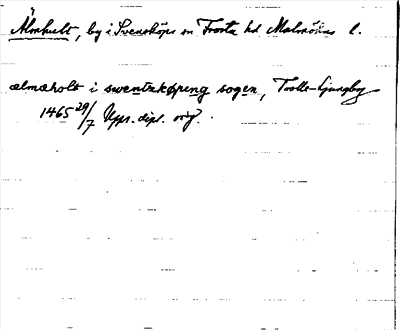 Älmhult, by i Svensköps sn Frosta hd Malmöhus l.
ælmæholt i swentzkøpeng sogen, Trolle-Ljungby
1465 29/7 Upps. dipl. orig.